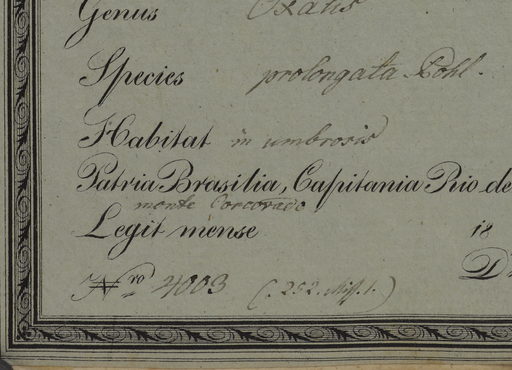 Genus Oxalis
Species prolongata Pohl.
Habitat in umbrosis
Patria Brasilia, Capitania Rio de
monte Corcovado
Legit mense 18
Nro 4003 (. 252. Miss. 1. )